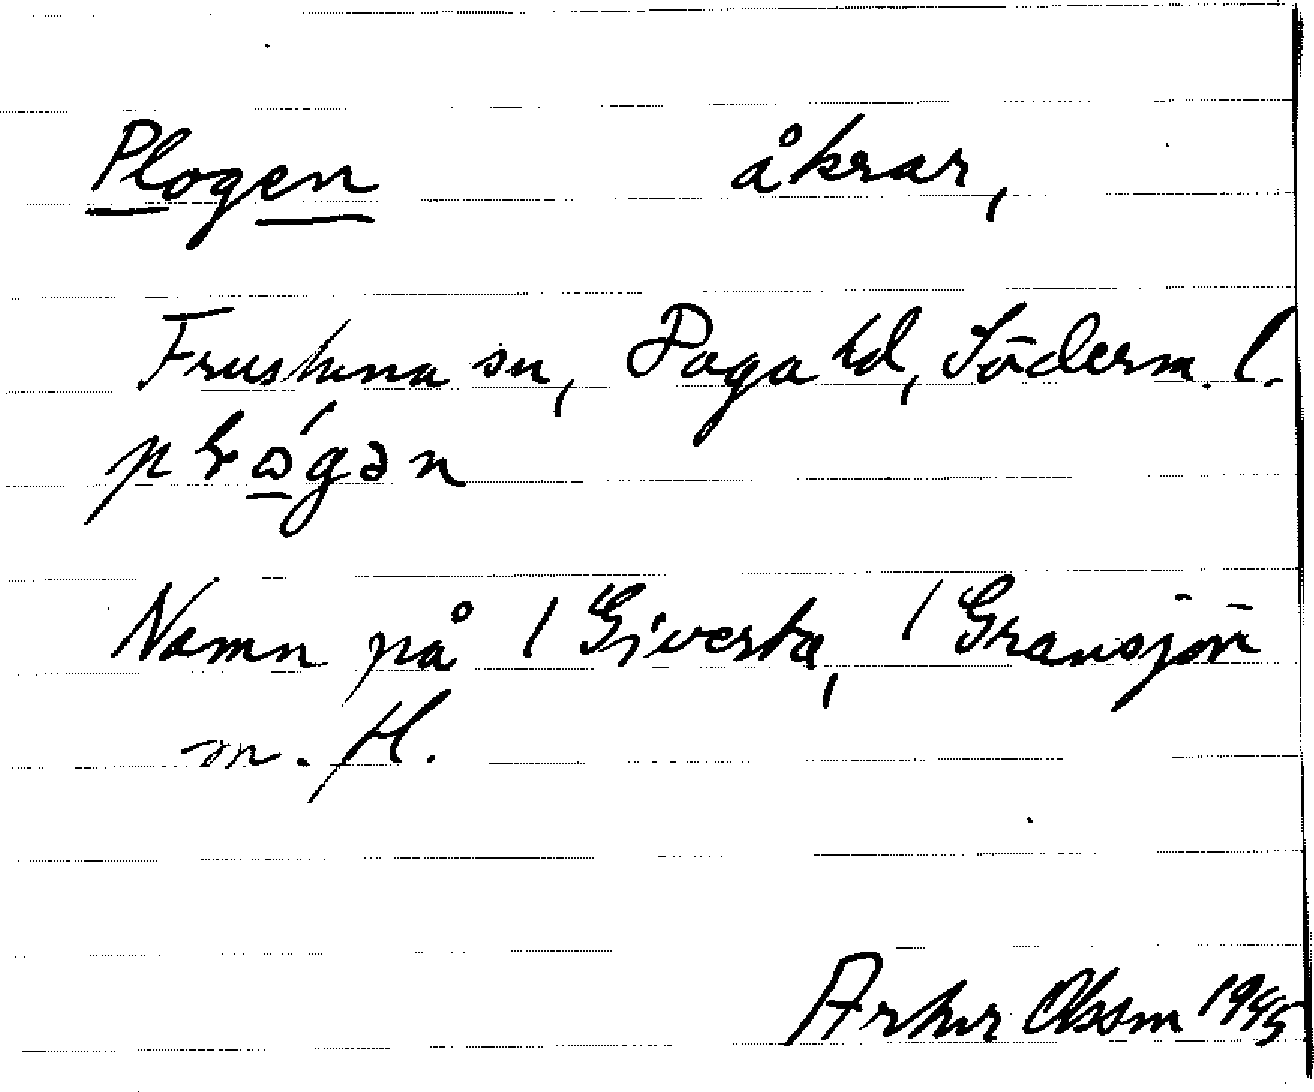 Plogen åkrar,
Frustuna sn, Daga hd, Söderm. l.
Namn på / Giversta, / Gransjön
m. fl.
Artur Olsson 1945